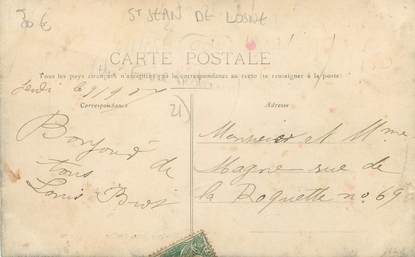 30 €
ST JEAN DE LOSNE
CARTE POSTALE
Tous les pays étrangers n'acceptent pas la correspondance au recto (se renseigner à la poste)
Correspondance
Adresse
21
Bonjour de
tous
Louis
Monsieur et Mme
Magne rue de
la Roquette no 69